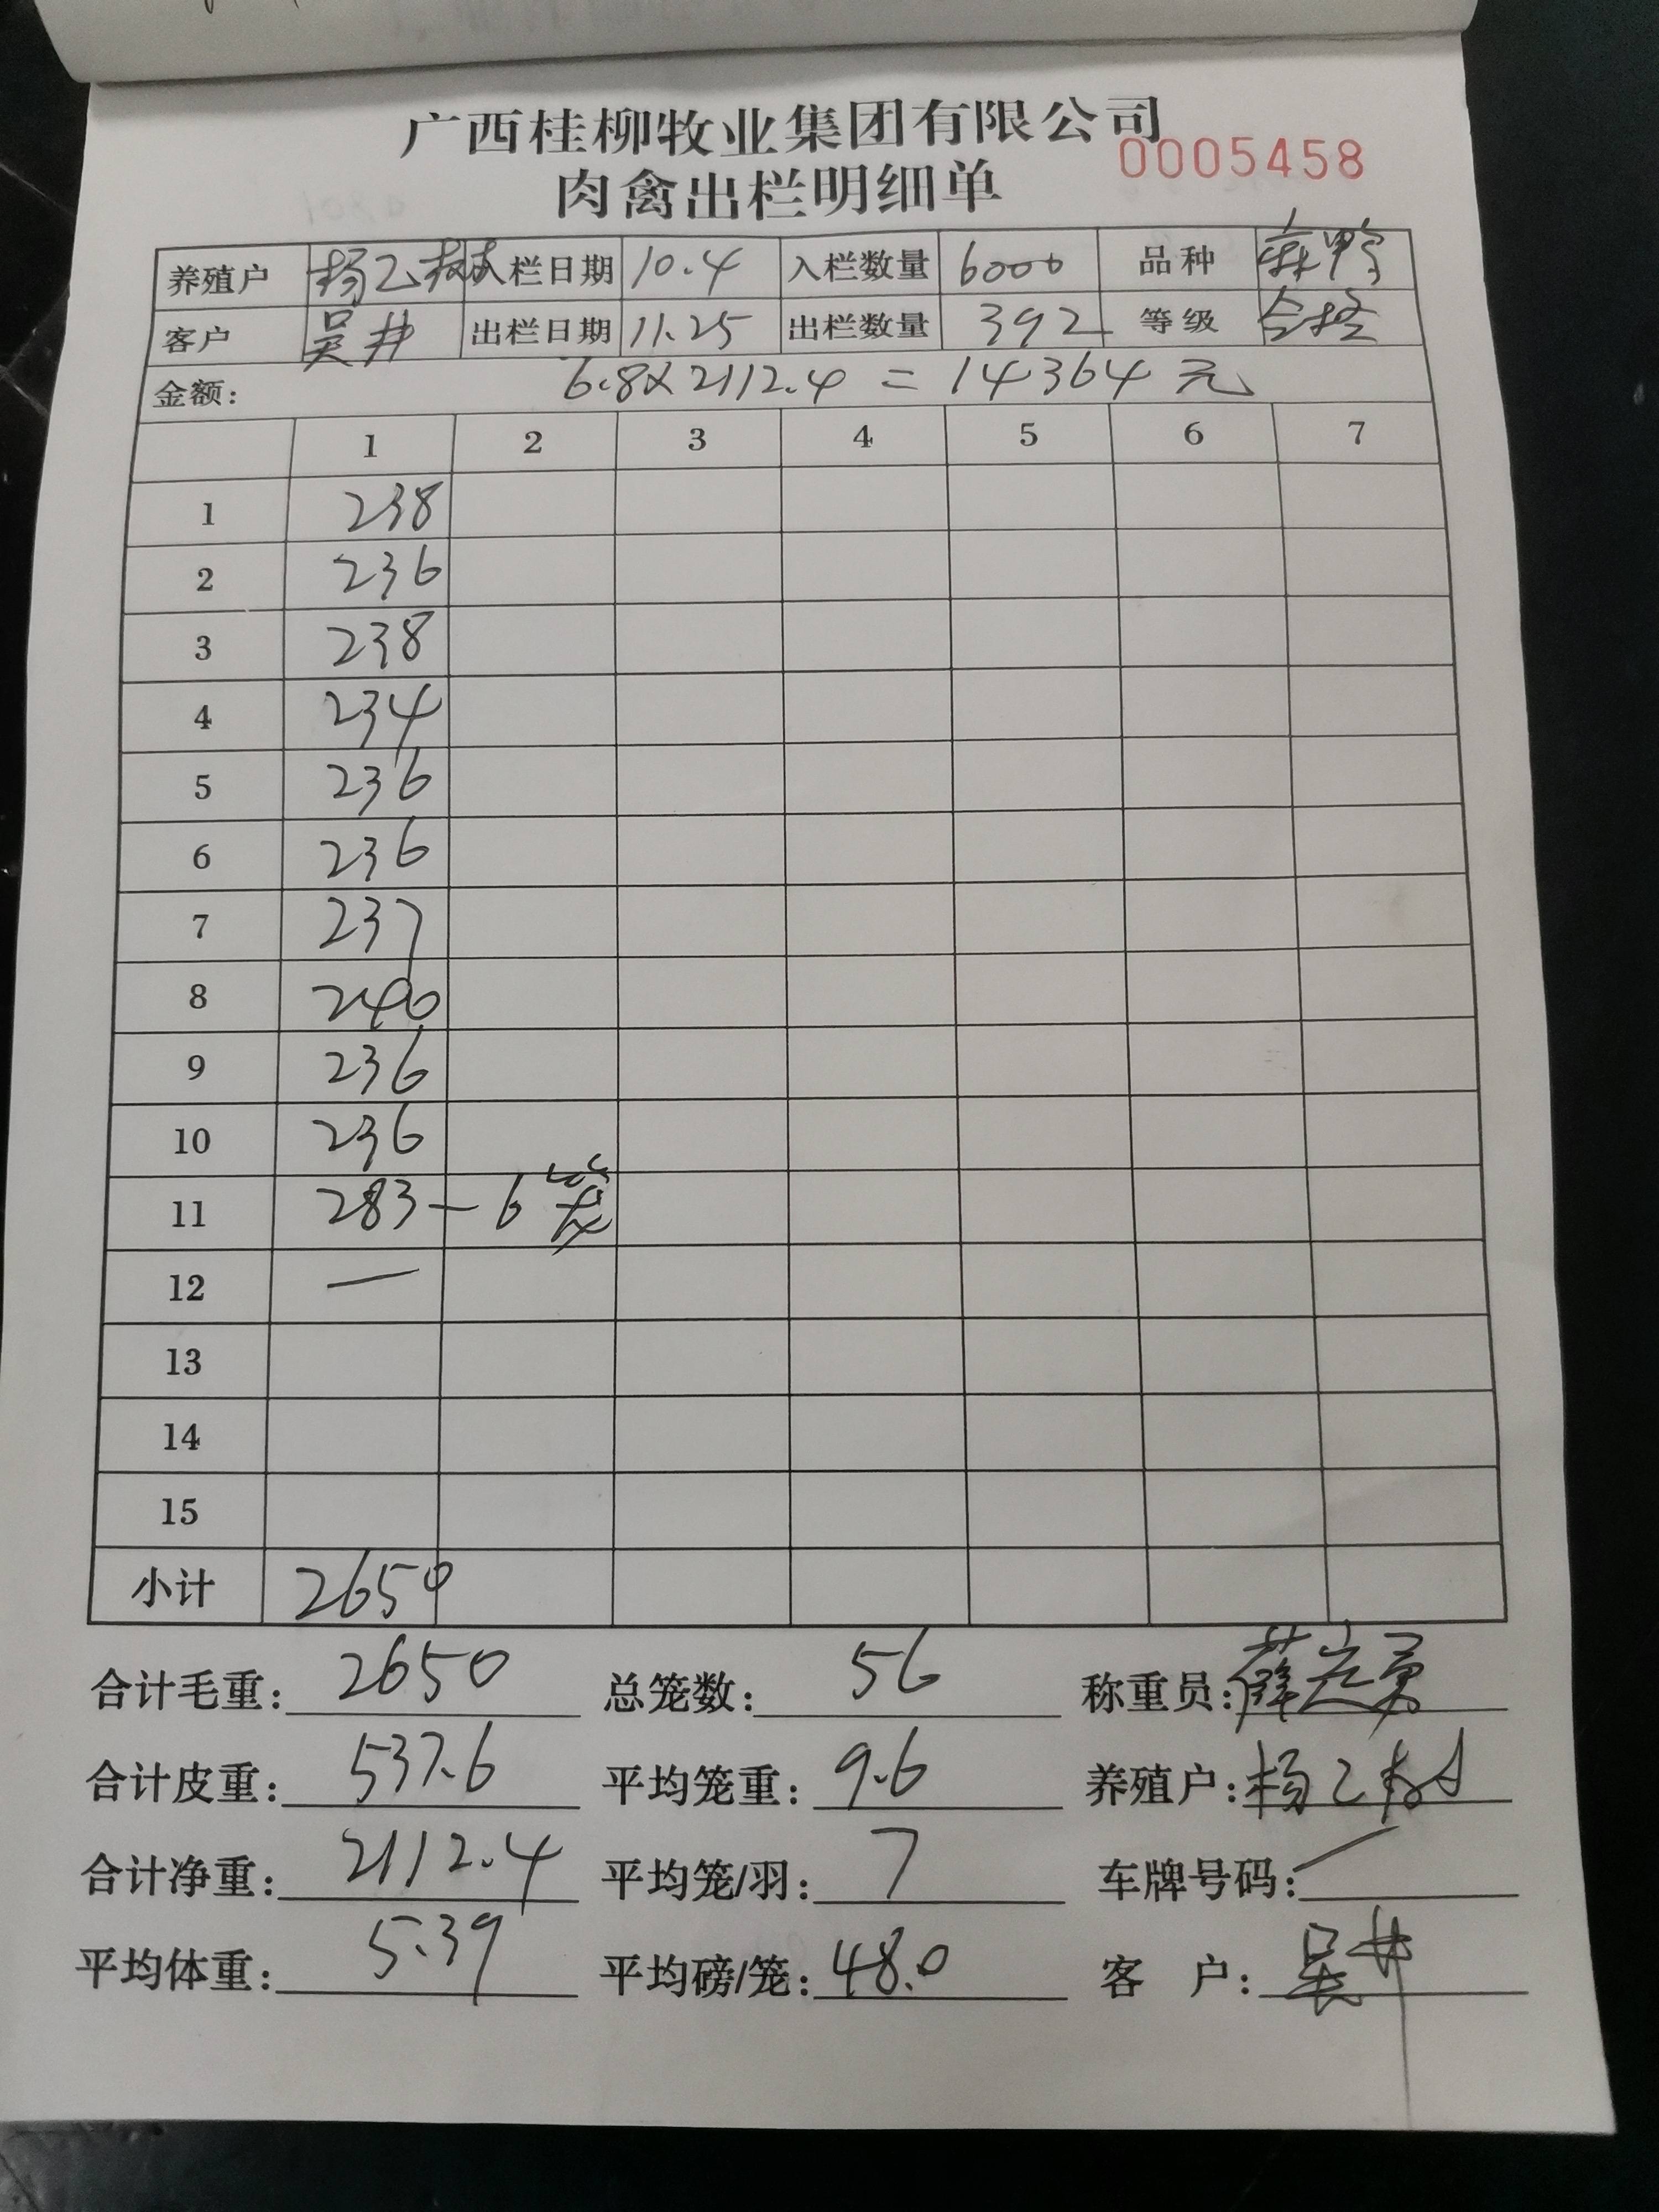 广西桂柳牧业集团有限公司
0005458
肉禽出栏明细单
养殖户 杨乙 入栏日期 10.4 入栏数量 6000 品种 麻鸭
客户 吴井 出栏日期 11.25 出栏数量 392 等级 合格
金额: 6.8×2112.4=14364元
1 2 3 4 5 6 7
1 238
2 236
3 238
4 234
5 236
6 236
7 237
8 240
9 236
10 236
11 283-6笼
12 —
13
14
15
小计 2650
合计毛重: 2650 总笼数: 56 称重员: 薛
合计皮重: 537.6 平均笼重: 9.6 养殖户: 杨乙
合计净重: 2112.4 平均笼/羽: 7 车牌号码: /
平均体重: 5.39 平均磅/笼: 48.0 客户: 吴井